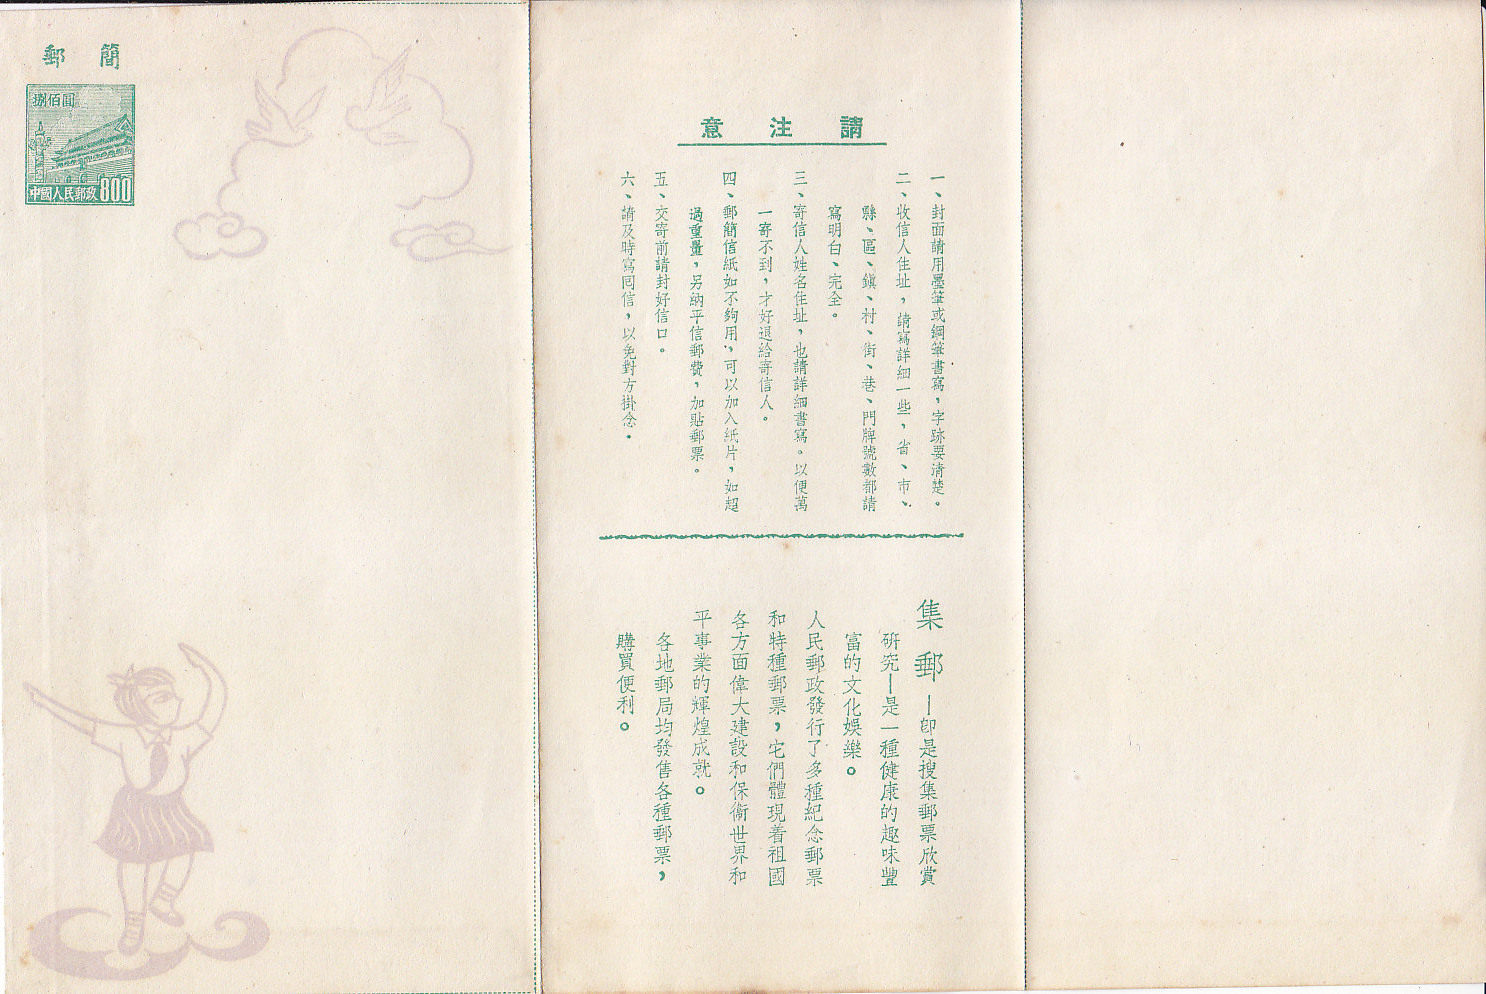 郵簡
捌佰圓
中國人民郵政800
請注意
一、封面請用墨筆或鋼筆書寫，字跡要清楚。
二、收信人住址，請寫詳細一些，省、市、
縣、區、鎮、村、街、巷、門牌號數都請
寫明白、完全。
三、寄信人姓名住址，也請詳細書寫。以便萬
一寄不到，才好退給寄信人。
四、郵簡信紙如不夠用，可以加入紙片，如超
過重量，另納平信郵費，加貼郵票。
五、交寄前請封好信口。
六、請及時寫回信，以免對方掛念。
集郵—即是搜集郵票欣賞
研究—是一種健康的趣味豐
富的文化娛樂。
人民郵政發行了多種紀念郵票
和特種郵票，它們體現着祖國
各方面偉大建設和保衛世界和
平事業的輝煌成就。
各地郵局均發售各種郵票，
購買便利。